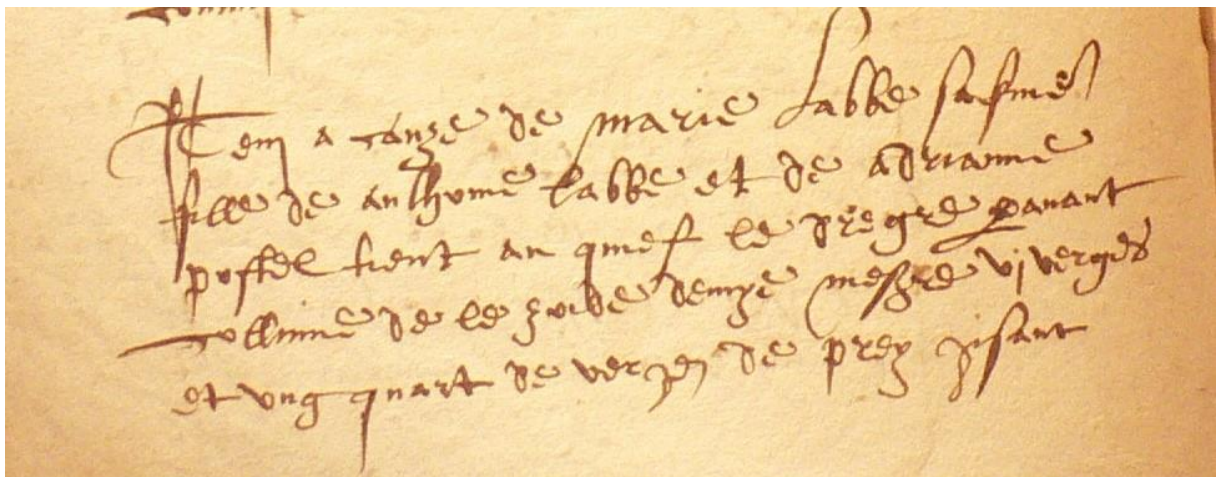 Item a cauze de marie Labbe sa fme
fille de anthoine Labbe et de adrianne
postel tient au quief le degre pauant
de le demye mesure vj verges
et ung quart de verge de prey gisant